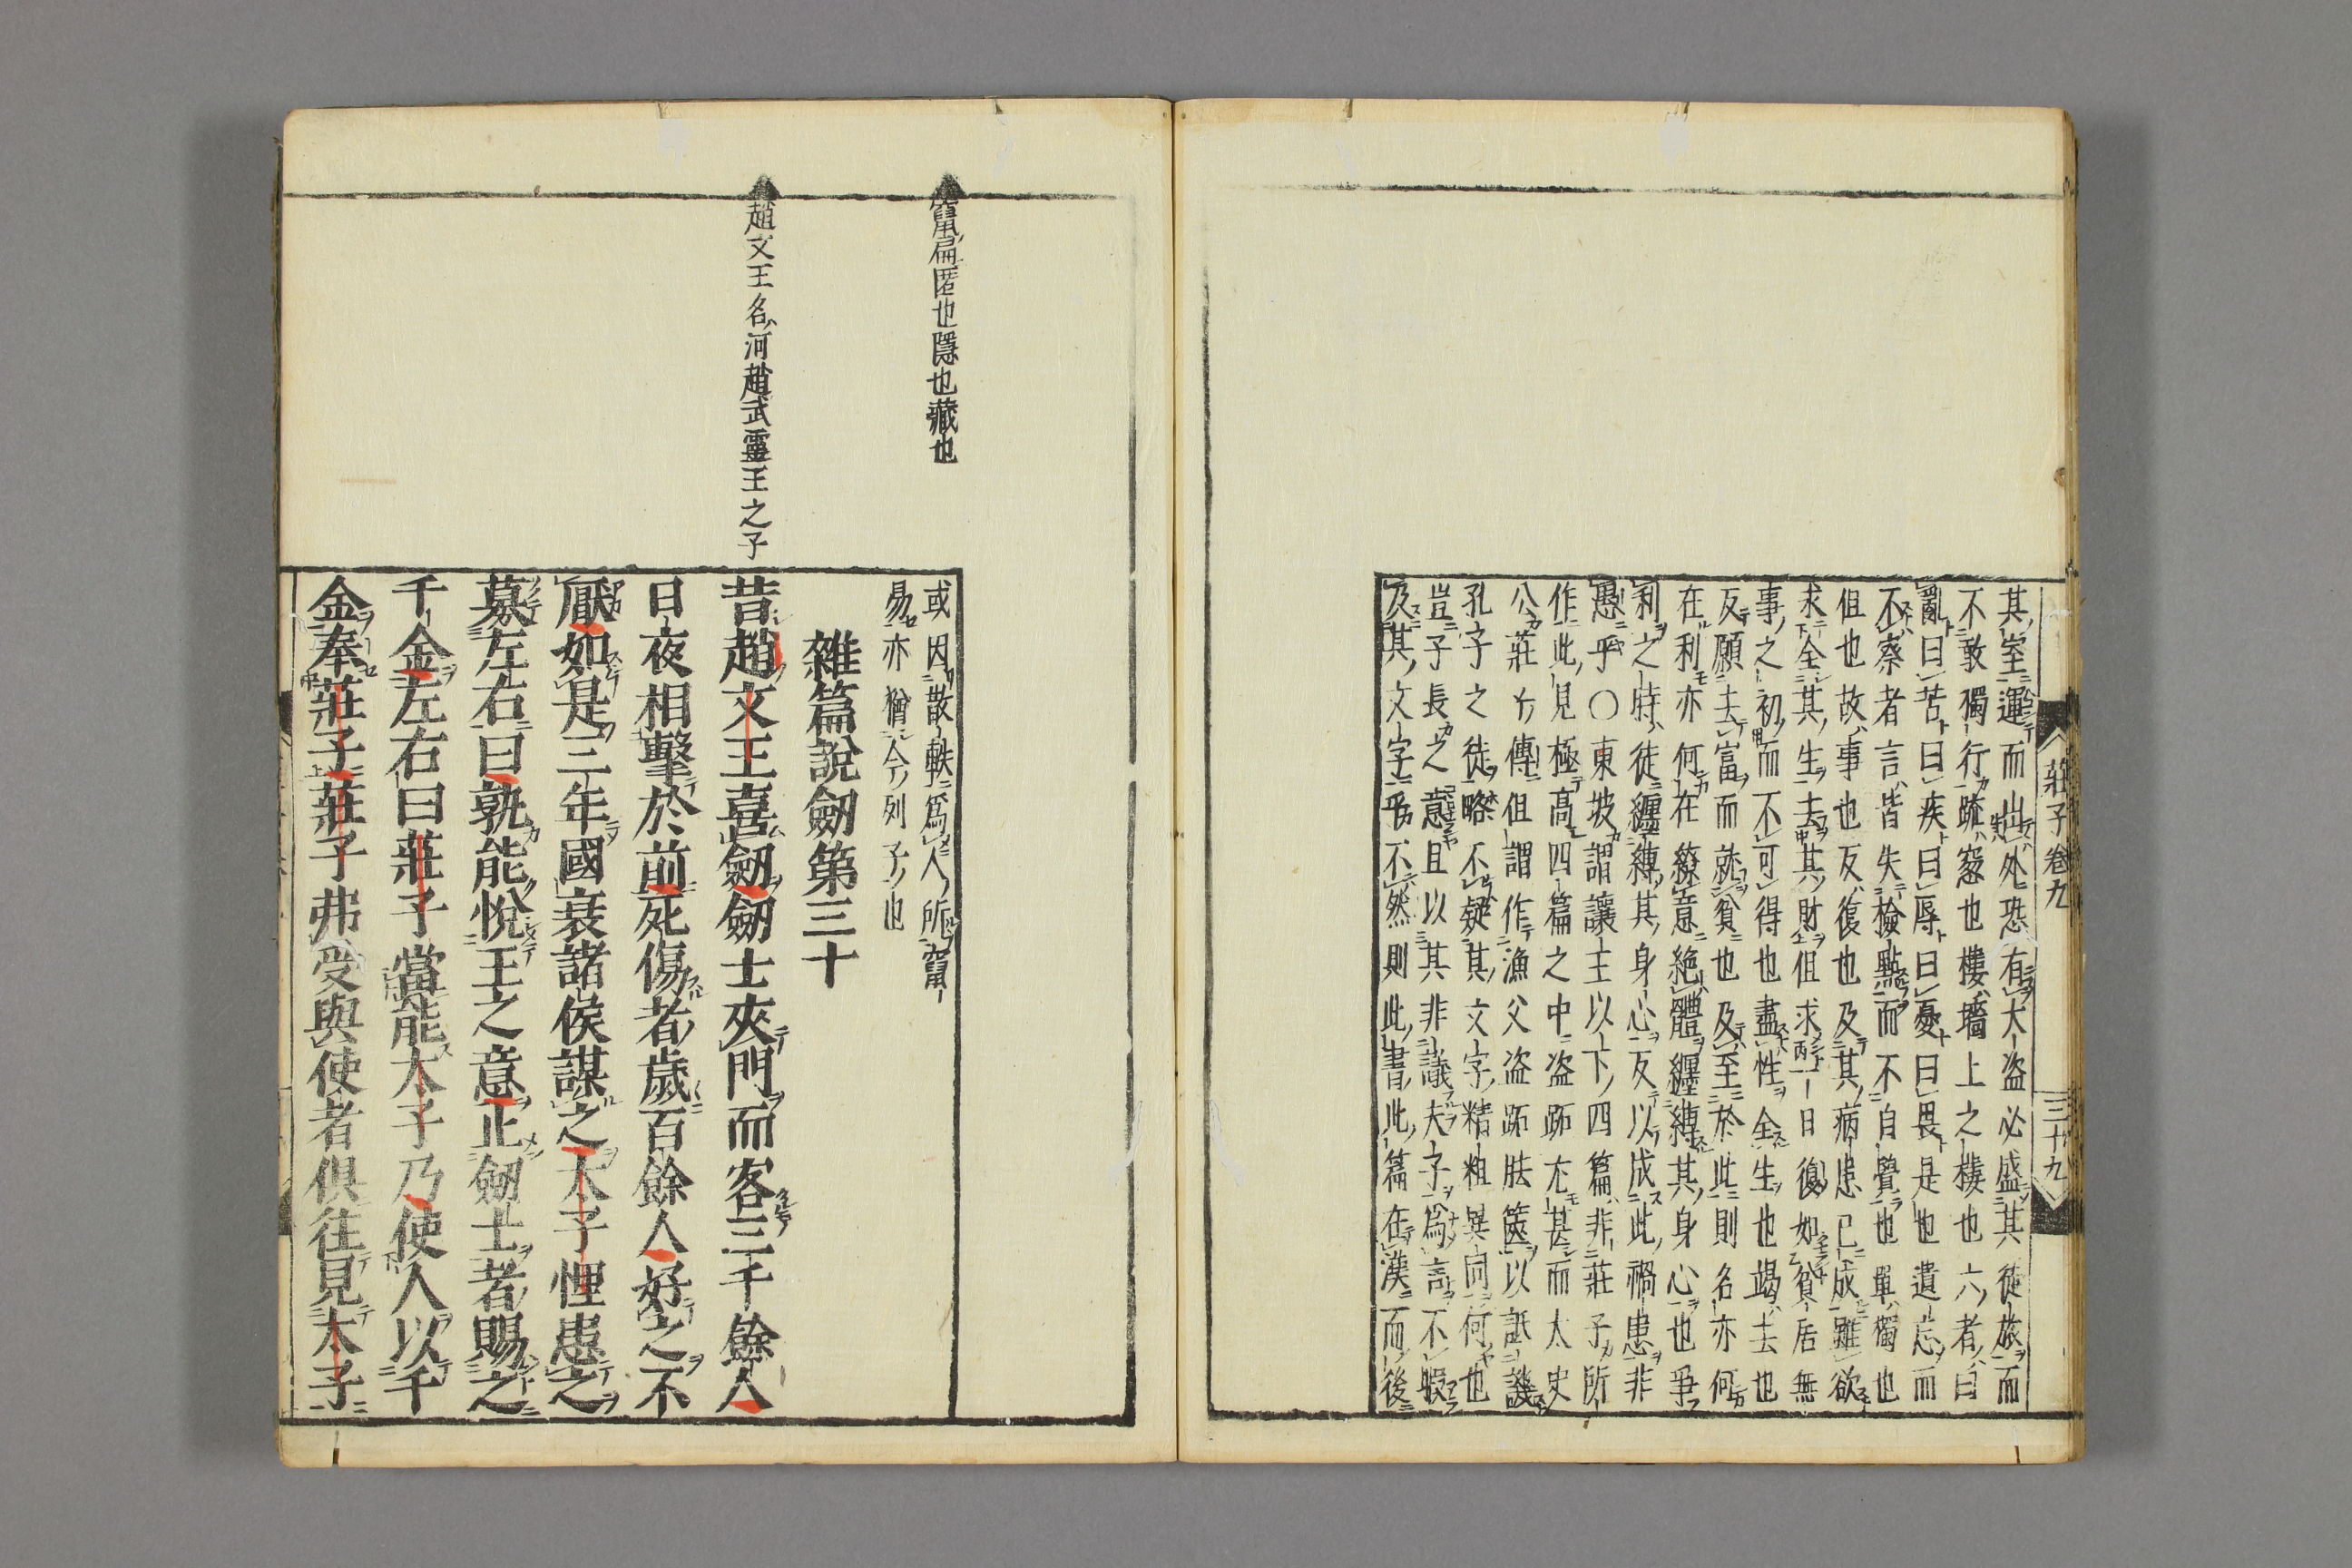 莊子卷九
三十九
其室運而出外恐有大盗必盛其徒旅而
不敢獨行疏窓也樓墻上之樓也六者曰
亂曰苦曰疾曰辱曰憂曰畏是也遺忘而
不察者言皆失檢點而不自覺也單獨也
但也故事也反復也及其病患已成雖欲
求全其生去其財但求一日復如貧居無
事之初而不可得也盡性全生也竭去也
反願去富而就貧也及至於此則名亦何
在利亦何在繚意絶體纏縛其身心也爭
利之時徒纏縛其身心反以成此禍患非
愚乎〇東坡謂讓王以下四篇非莊子所
作此見極髙四篇之中盗跖尤甚而太史
公莊子傳但謂作漁父盗跖胠篋以詆譏
孔子之徒略不疑其文字精粗異同何也
豈子長之意且以其非議夫子爲言不暇
及其文字乎不然則此書此篇在漢而後
竄篇匿也隱也藏也
或因散軼爲人所竄
易亦猶今列子也
雜篇說劒第三十
趙文王名河趙武靈王之子
昔趙文王喜劒劒士夾門而客三千餘人
日夜相擊於前死傷者歲百餘人好之不
厭如是三年國衰諸侯謀之太子悝患之
募左右曰孰能悅王之意止劒士者賜之
千金左右曰莊子當能太子乃使人以千
金奉莊子莊子弗受與使者俱往見太子